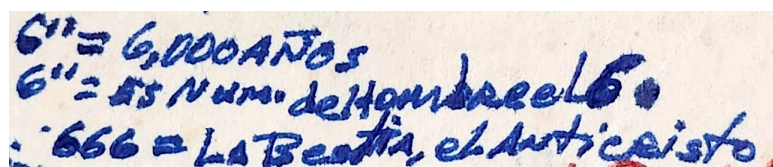 6"= 6,000 AÑOS
6"= ES Num. del Hombre el 6.
666 = LA Bestia, el Anticristo